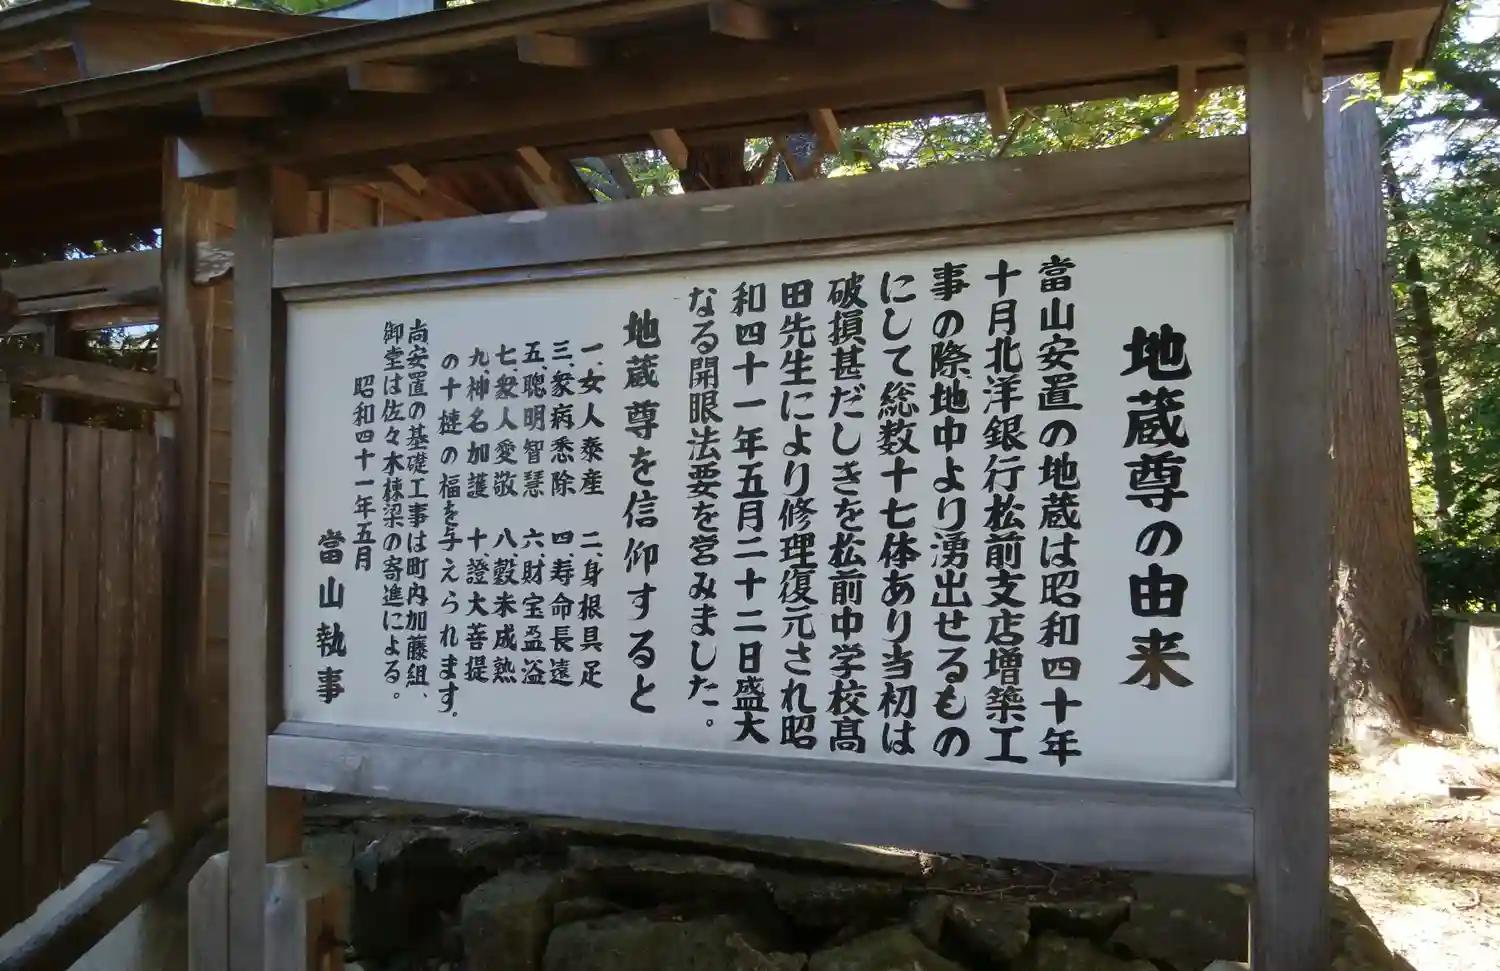 地蔵尊の由来
當山安置の地蔵は昭和四十年
十月北洋銀行松前支店増築工
事の際、地中より湧出せるもの
にして総数十七体あり当初は
破損甚だしきを松前中学校髙
田先生により修理復元され昭
和四十一年五月二十二日盛大
なる開眼法要を営みました。
地蔵尊を信仰すると
一、女人泰産 二、身根具足
三、衆病悉除 四、寿命長遠
五、聰明智慧 六、財宝盈溢
七、衆人愛敬 八、穀米成熟
九、神名加護 十、證大菩提
の十種の福を与えられます.
尚安置の基礎工事は町内加藤組、
御堂は佐々木棟梁の寄進による。
昭和四十一年五月
當山執事